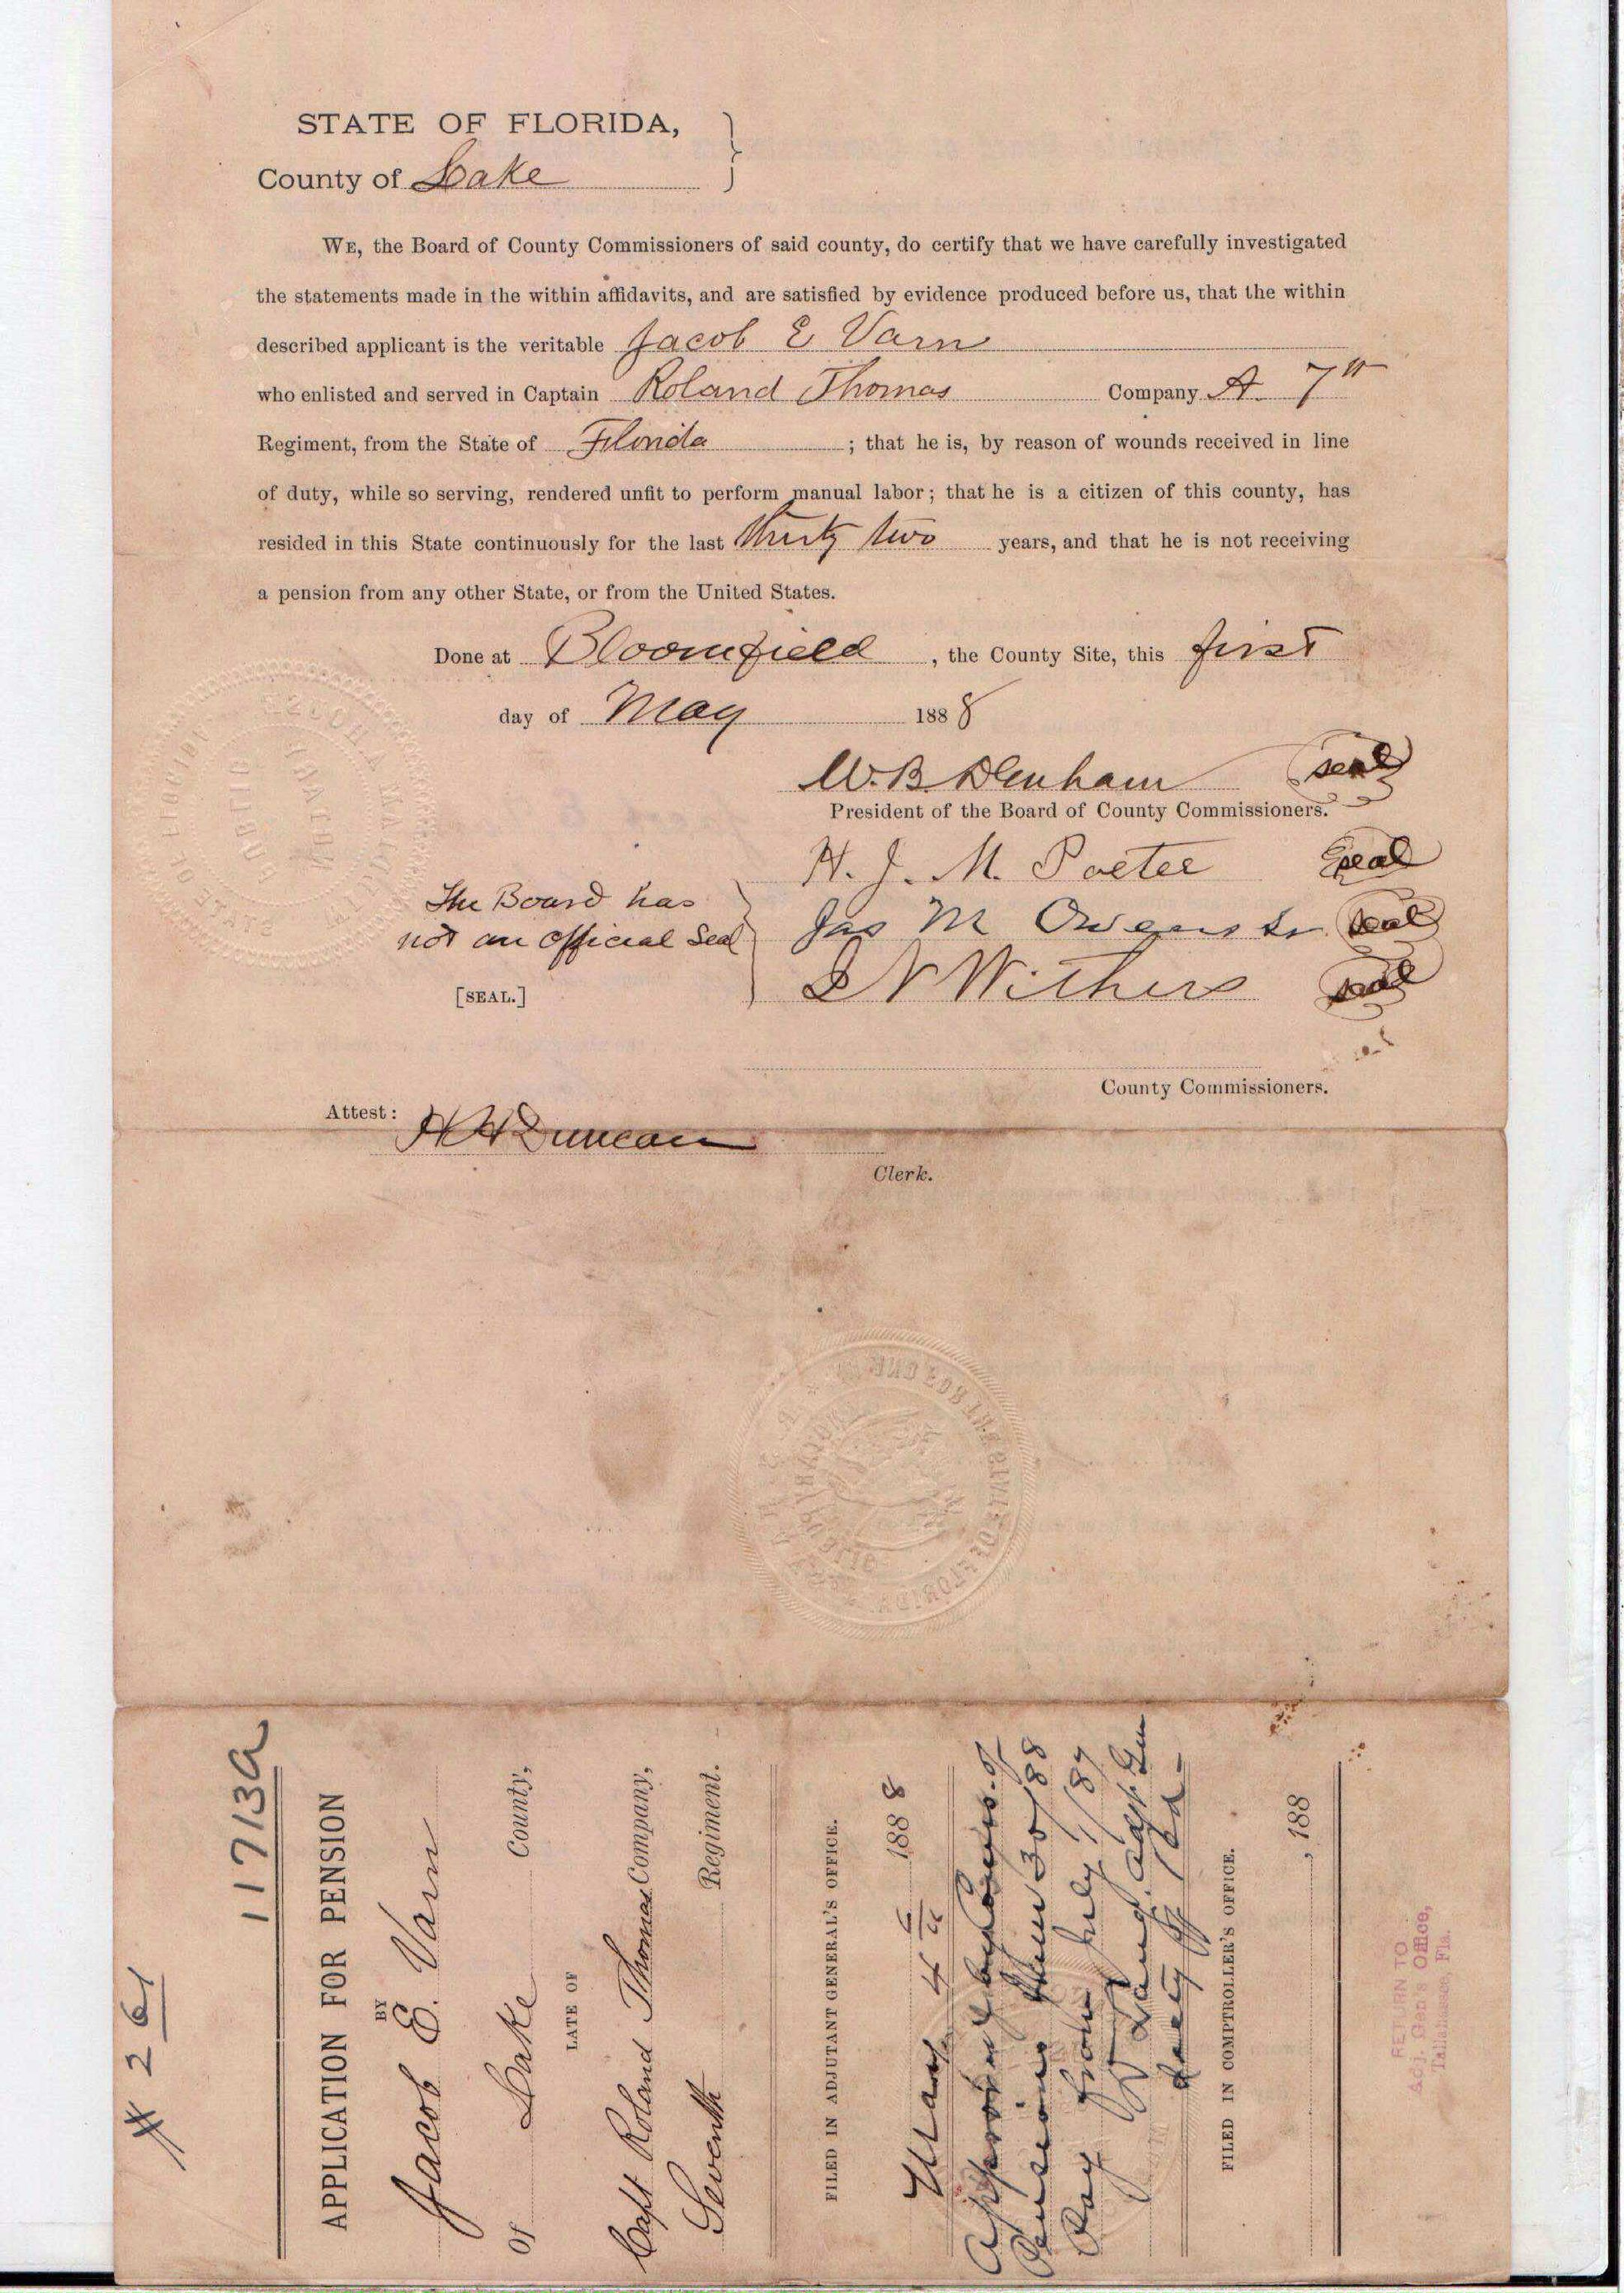 STATE OF FLORIDA,
County of Lake
WE, the Board of County Commissioners of said county, do certify that we have carefully investigated
the statements made in the within affidavits, and are satisfied by evidence produced before us, that the within
described applicant is the veritable Jacob E Varn
who enlisted and served in Captain Roland Thomas Company A. 7th
Regiment, from the State of Florida ; that he is, by reason of wounds received in line
of duty, while so serving, rendered unfit to perform manual labor; that he is a citizen of this county, has
resided in this State continuously for the last thirty two years, and that he is not receiving
a pension from any other State, or from the United States.
Done at Bloomfield , the County Site, this first
day of May 1888
W. B. Denham seal
President of the Board of County Commissioners.
H. J. M. Porter seal
The Board has
not an official Seal
Jas M Owens Sr seal
[SEAL.]
N Withers seal
County Commissioners.
Attest: H H Duncan
Clerk.
# 261
11713a
APPLICATION FOR PENSION
BY
Jacob E. Varn
Of Lake County,
LATE OF
Capt Roland Thomas Company,
Seventh Regiment.
FILED IN ADJUTANT GENERAL'S OFFICE.
May 4th 1888
Approved by Comrs. of
Pensions June 30/88
Pay from July 1/87
D Lang, Adjt. Gen
Secty
FILED IN COMPTROLLER'S OFFICE.
, 188
RETURN TO
Adj. Gen's Office,
Tallahassee, Fla.